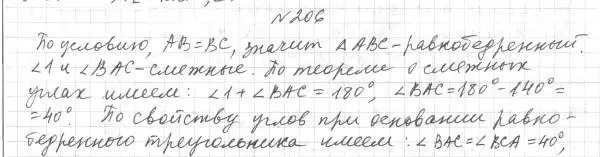 №206
По условию, AB=BC, значит ΔABC-равнобедренный.
∠1 и ∠BAC-смежные. По теореме о смежных
углах имеем: ∠1+∠BAC=180°, ∠BAC=180°-140°=
=40°. По свойству углов при основании равно-
бедренного треугольника имеем: ∠BAC=∠BCA=40°,